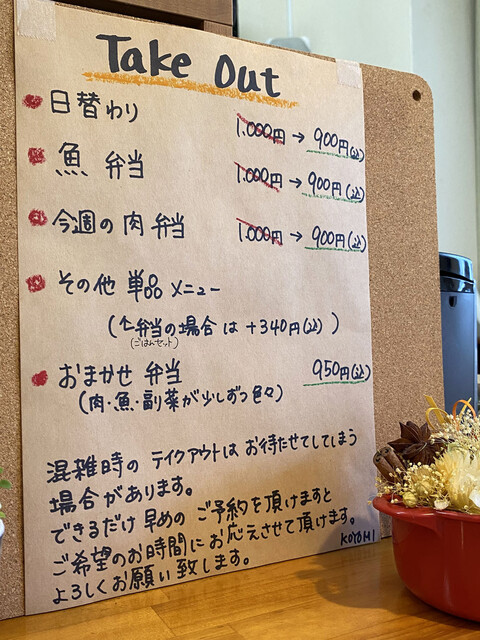 Take Out
日替わり
1.000円 → 900円(込)
魚 弁当
1.000円 → 900円(込)
今週の肉弁当
1.000円 → 900円(込)
その他 単品メニュー
(↑弁当の場合は +340円(込))
(ごはんセット)
おまかせ 弁当 950円(込)
(肉・魚・副菜が少しずつ色々)
混雑時の テイクアウトは お待たせしてしまう
場合があります。
できるだけ 早めの ご予約を頂けますと
ご希望のお時間にお応えさせて頂けます。
よろしくお願い致します。 KOYOMI